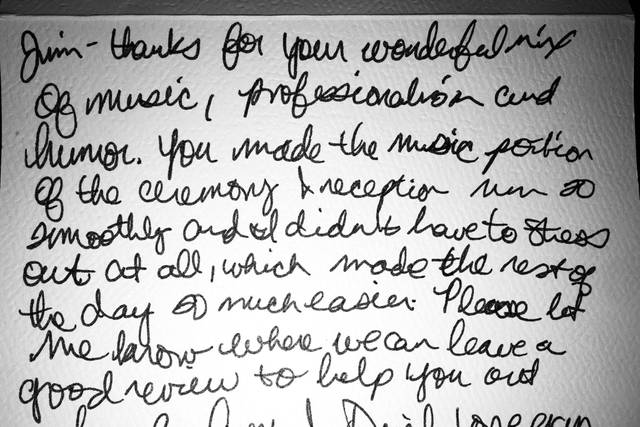 Jim - thanks for your wonderful mix
of music, professionalism and
humor. You made the music portion
of the ceremony & reception run so
smoothly and I didn't have to stress
out at all, which made the rest of
the day so much easier. Please let
me know where we can leave a
good review to help you out